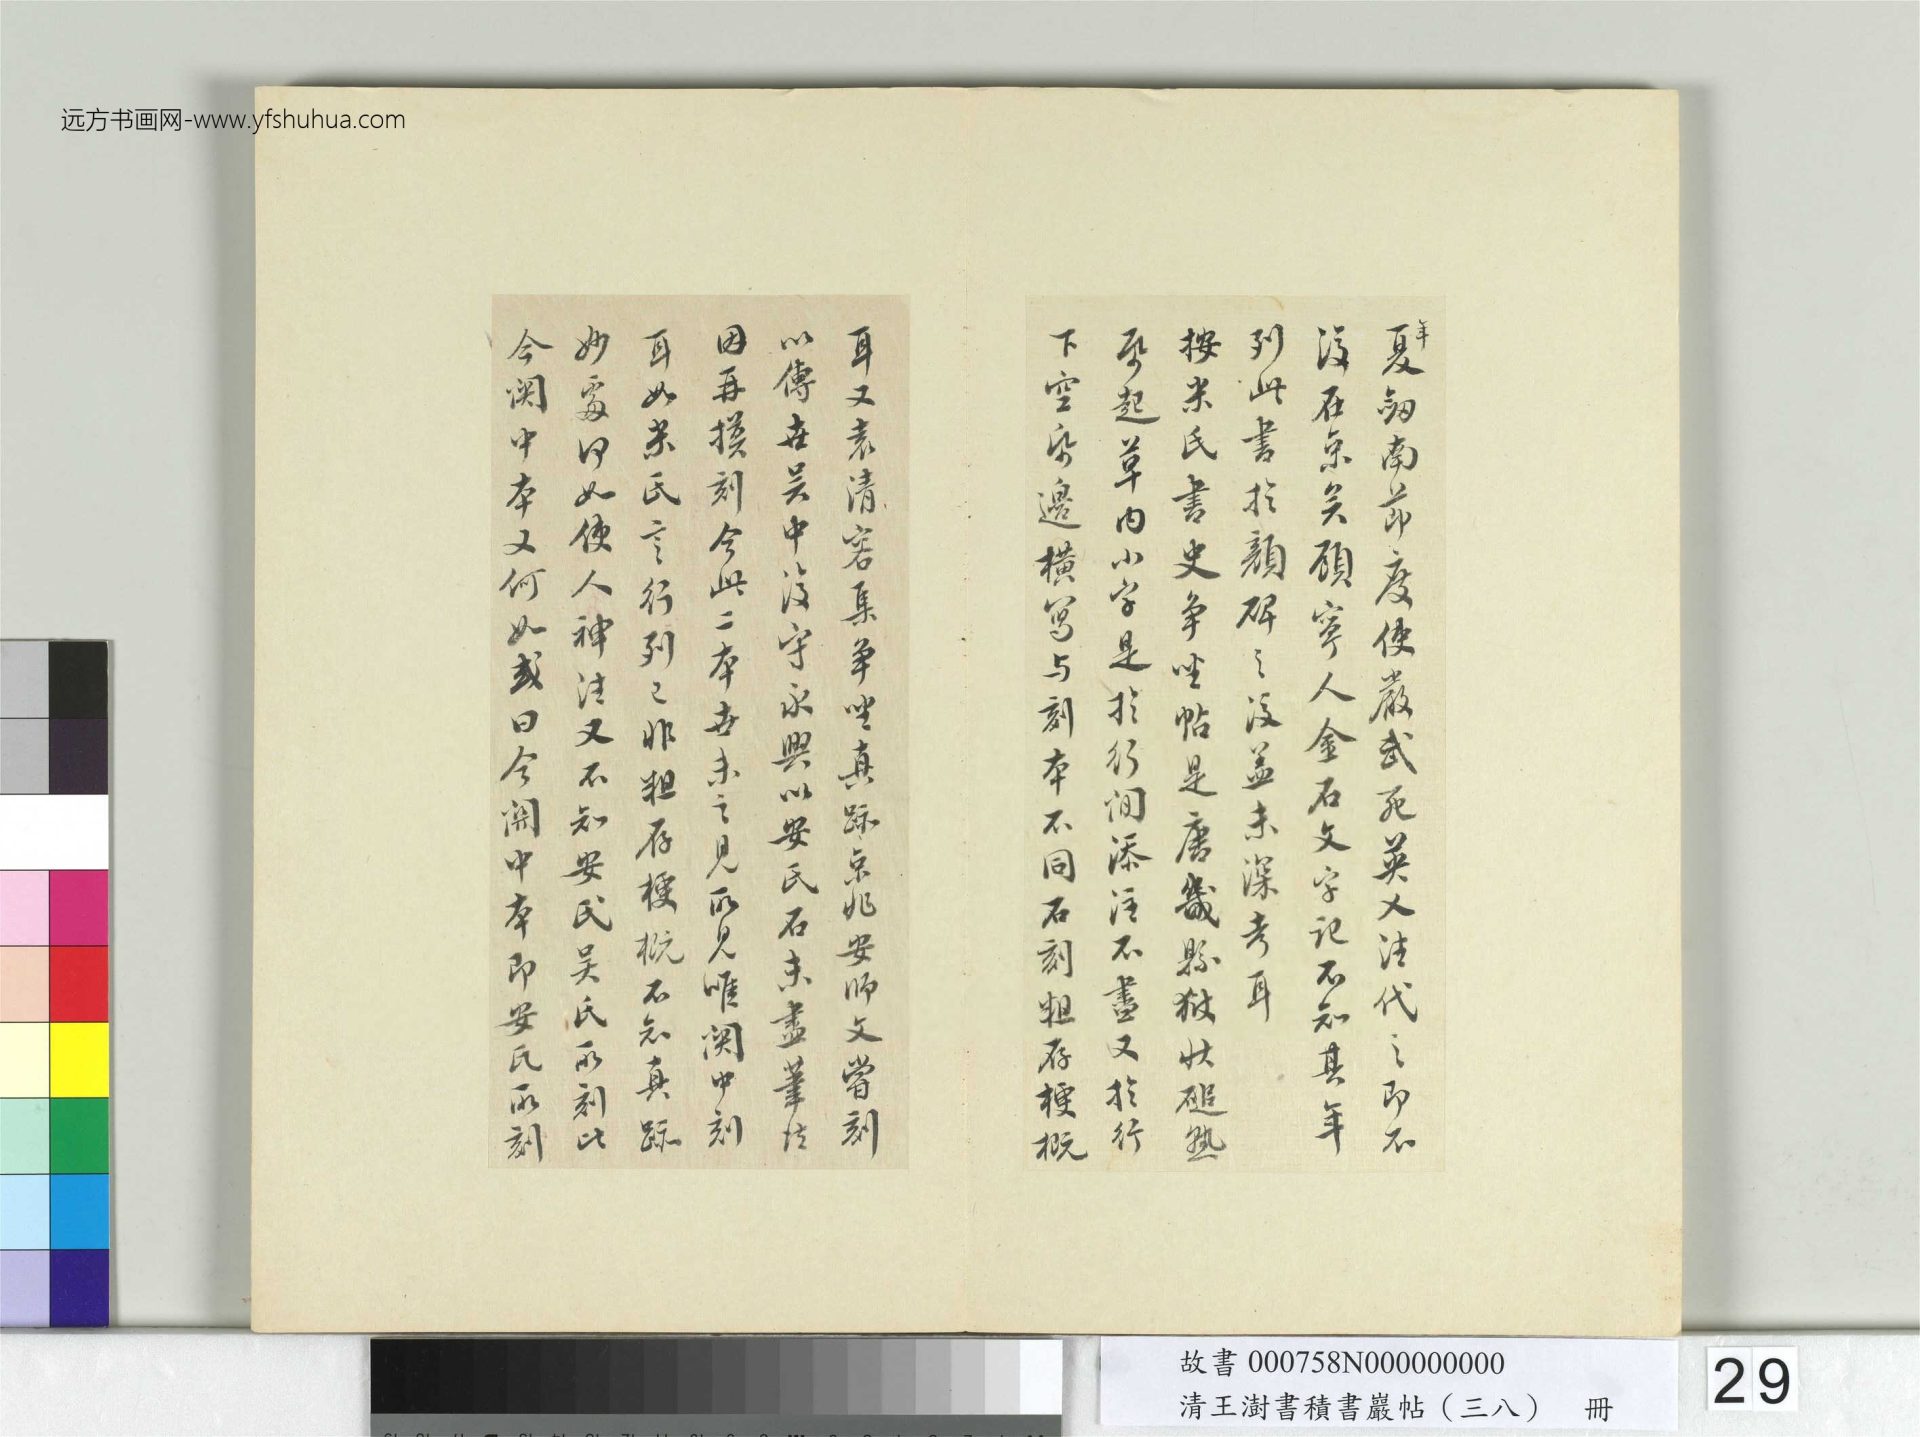 远方书画网-www.yfshuhua.com
年
夏劒南節度使嚴武死英乂法代之即不
復在京矣顧寧人金石文字記不知其年
列此書於顏碑之後盖未深考耳
按米氏書史争坐帖是唐畿縣獄狀磓熟
紙起草内小字是於行間添注不盡又於行
下空紙邊横寫与刻本不同石刻粗存梗概
耳又袁清容集争坐真跡京兆安師文嘗刻
以傳在吴中復守永興以安氏石未盡筆法
因再摸刻今此二本世未之見所見唯関中刻
耳如米氏言行列已非粗存梗概不知真跡
妙處何如使人神法又不知安氏吴氏所刻比
今関中本又何如或曰今関中本即安氏所刻
故書000758N000000000
清王澍書積書巖帖（三八） 冊
29